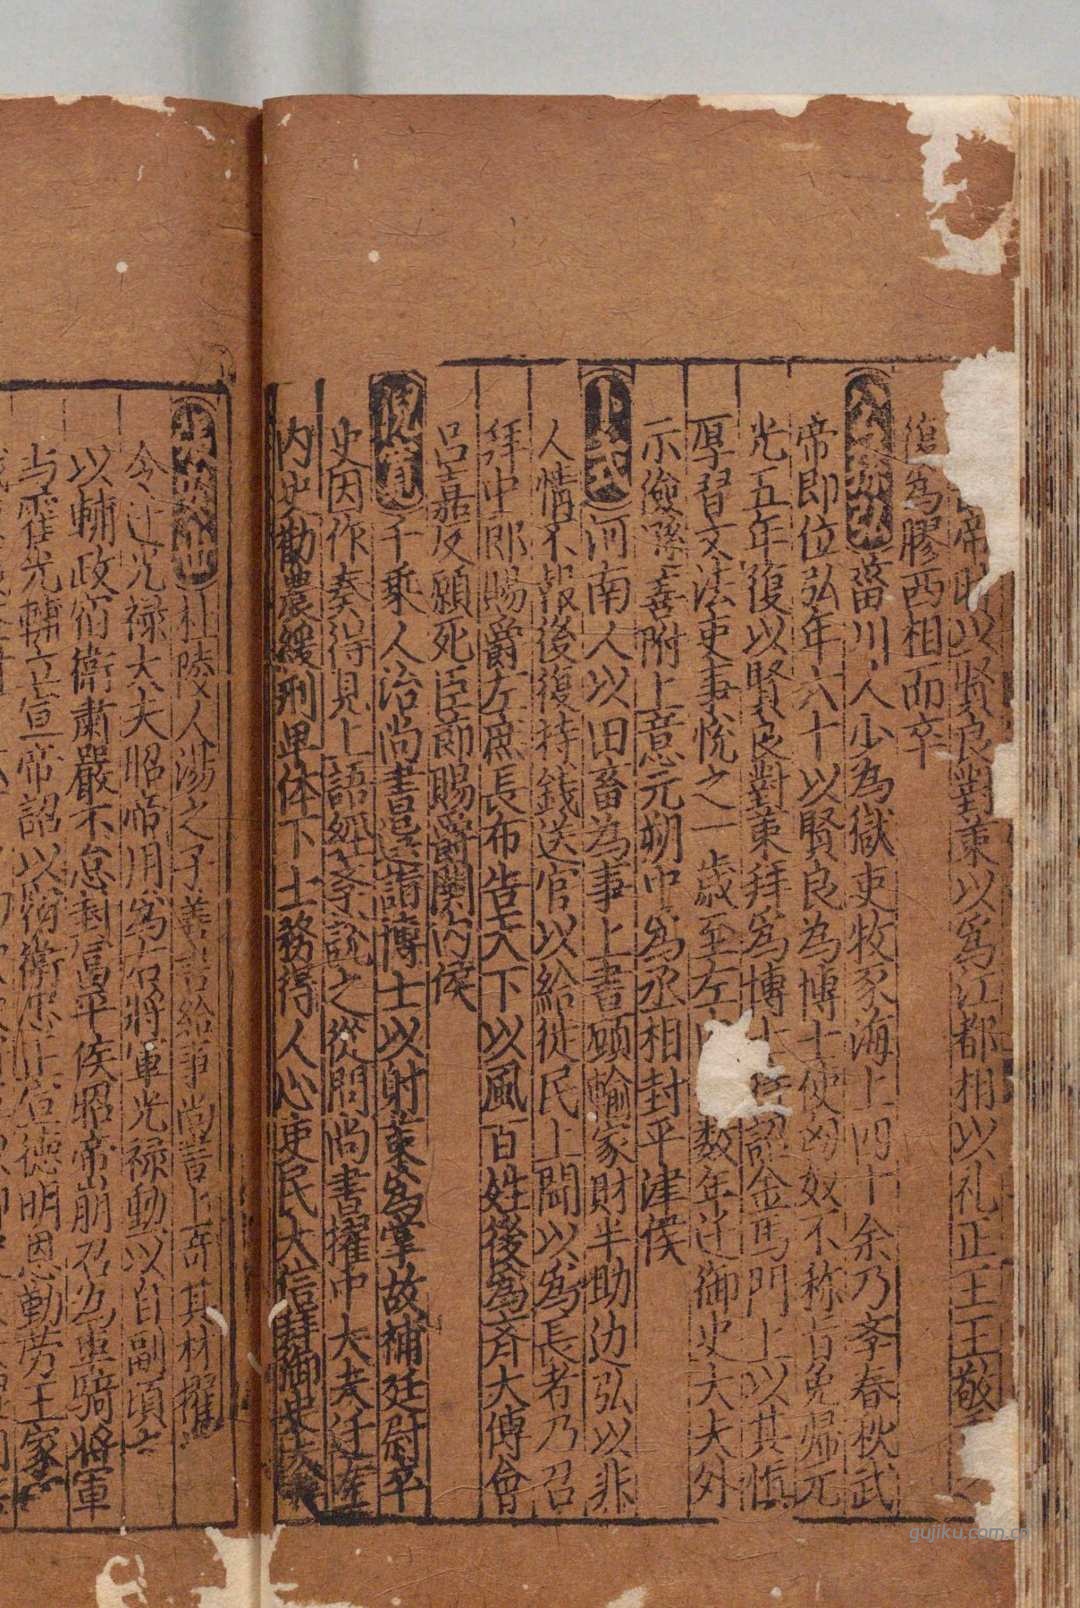 帝時以賢良對策以為江都相以礼正王王敬
復為膠西相而卒
公孫弘 菑川人少為獄吏牧豕海上四十余乃孝春秋武
帝即位弘年六十以賢良為博士使匈奴不称旨免歸元
光五年復以賢良對策拜為博士詔金馬門上以其慎
厚習文法吏事悅之一歲至左数年迁御史大夫外
示儉孫善附上意元朔中為丞相封平津侯
卜式 河南人以田畜為事上書願輸家財半助边弘以非
人情不報後復持錢送官以給徙民上聞以為長者乃召
拜中郎賜爵左庶長布告天下以風百姓後為斉大傅會
呂嘉反願死臣節賜爵関内侯
倪寬 千乗人治尚書邑選詣博士以射策為掌故補廷尉卒
史因作奏得見上語經孝說之從問尚書擢中大夫迁左
内史勸農緩刑卑体下士務得人心吏民大信拜御史大夫
張安世 杜陵人湯之子善書給事尚書上奇其材擢
令迁光祿大夫昭帝用為右將軍光祿勳以自副頃之
以輔政宿衛肅嚴不怠封富平侯昭帝崩召為車騎將軍
与霍光輔立宣帝詔以宿衛忠正宣德明恩勤労王家
gujiku.com.cn